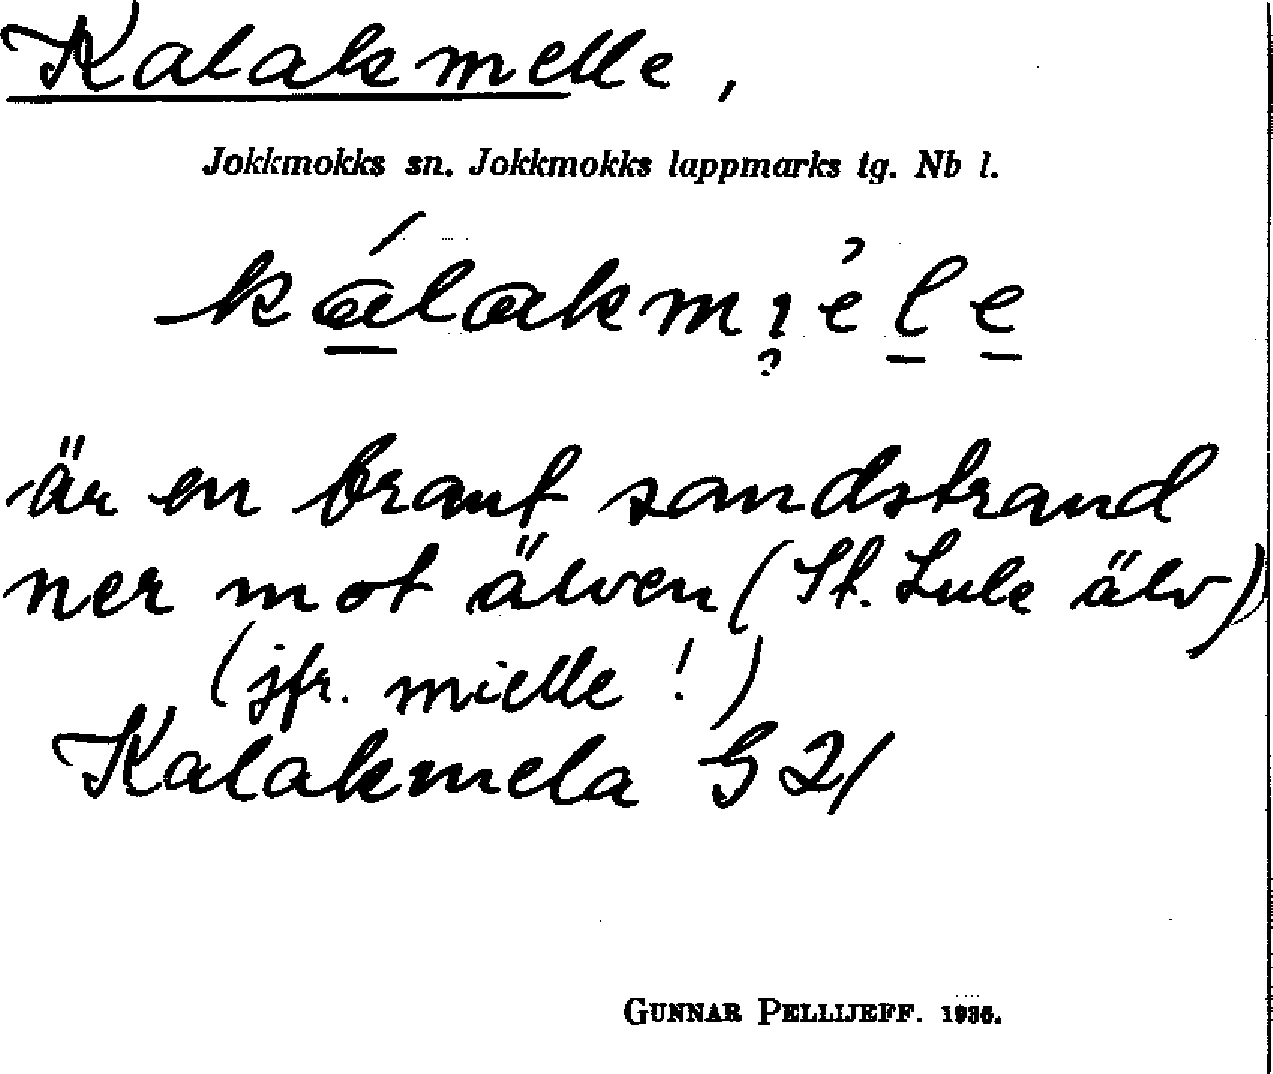 Kalakmelle,
Jokkmokks sn. Jokkmokks lappmarks tg. Nb l.
kálakmiele
är en brant sandstrand
ner mot älven (St. Lule älv)
(jfr. mielle!)
Kalakmela G 21
GUNNAR PELLIJEFF. 1936.